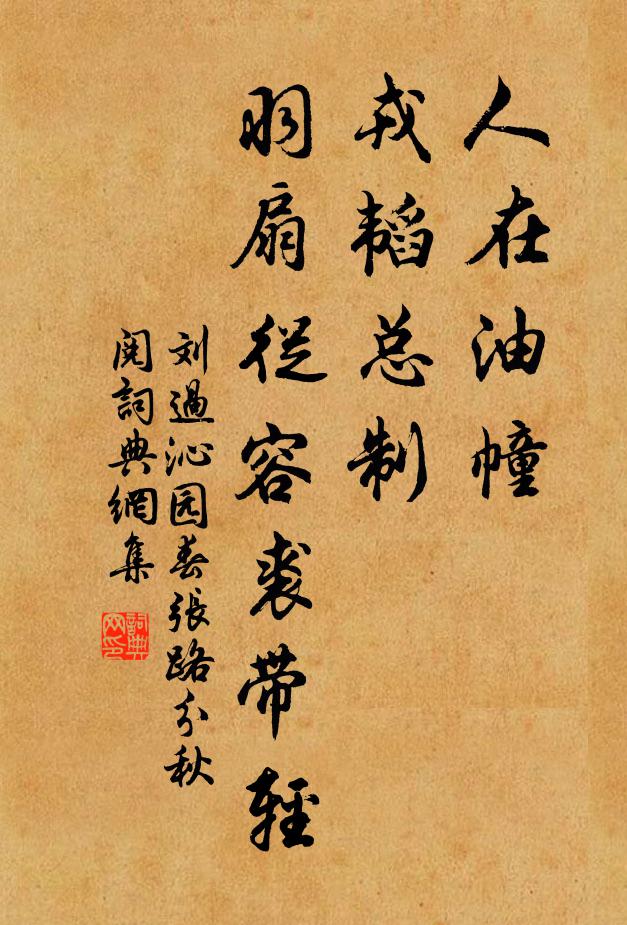 人在油幢
戎韬总制
羽扇从容裘带轻
刘過沁园春張路分秋
阅詞典網集
詞典网印